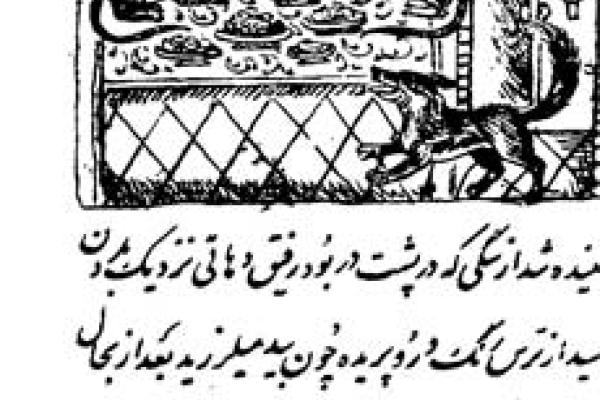 شنیده شد از سگی که در پشت در بود رفیق دهاتی نزدیک بمردن
رسید از ترس رنگ از رو پریده چون بید میلرزید بعد از بحال